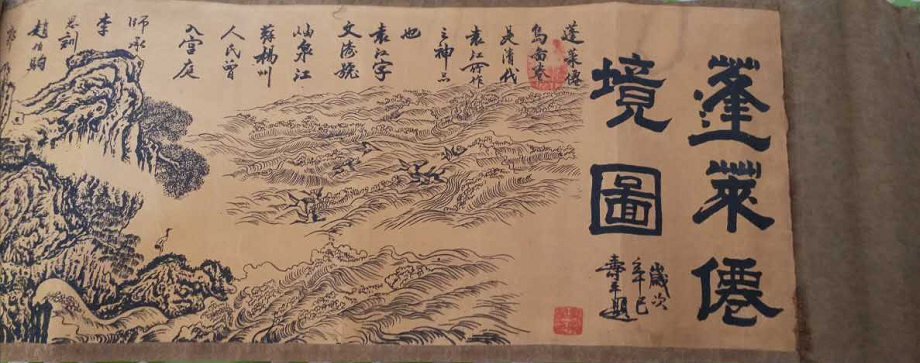 蓬萊僊
境圖
歲次
辛巳
壽平題
蓬萊僊
島畵卷
是清代
袁江所作
之神品
也
袁江字
文濤號
岫泉江
蘇楊州
人民曾
入宮庭
師承
李
思訓
趙伯駒